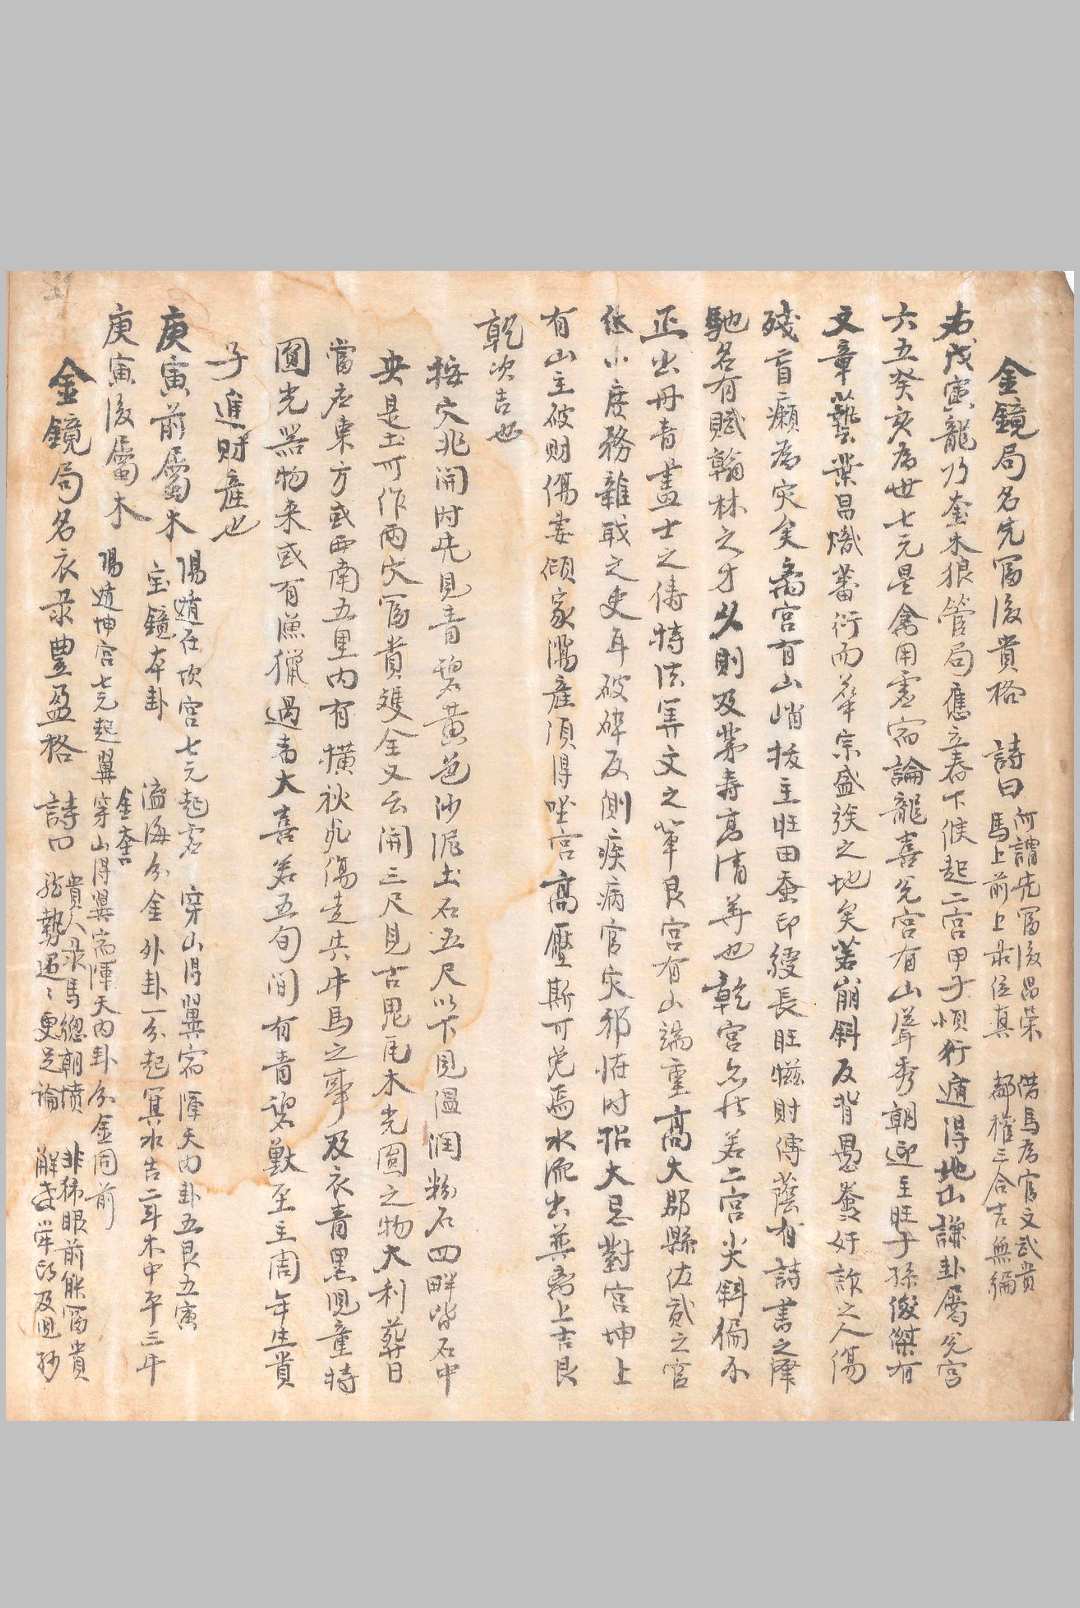 金鏡局名先冨後貴格　詩曰　何謂先冨後昌榮　借馬為官文武貴
馬上前上录位真　都權三合吉無編
右戊寅龍乃奎木狼管局應立春下候起二宫甲子順行遁得地山謙卦屬兌宫
六五癸亥為世七元是禽用虚宿論龍喜兌宫有山聳秀朝迎主旺子孫俊傑有
文章藝業昌熾蕃衍而華宗盛族之地矣若崩斜反背愚蠢奸詐之人傷
殘盲癩為灾矣离宫有山峭拔主旺田蚕印綬長旺滋財傳蔭有詩書之澤
馳名有賦翰林之才以則及第壽高清并也乾宫亦然若二宫尖斜偏不
正出丹青畫士之儔特法筭文之輩艮宫有山端重高大郡縣佐貳之官
低小度務雜職之吏耳破碎反側疾病官灾邪怪时招大忌對宫坤上
有山主破財傷妻傾家蕩産須得坐宫高壓斯可免焉水流出巽离上吉艮
乾次吉也
按穴兆開时先見青碧黄色沙泥土石五尺以下見温润粉石四畔皆石中
央是土可作兩穴冨貴雙全又云開三尺見古器瓦木光圓之物大利葬日
當应東方或西南五里内有横秋死傷走共牛馬之事及衣青黑児童特
圓光器物来或有漁獵過者大喜若五旬間有青碧獸至主周年生貴
子進財産也
庚寅前屬木　陽遁在坎宫七元起虚　穿山得翼宿渾天内卦五艮五寅
宝鏡本卦　滋海分金外卦一分起箕水吉二斗木中平三牛
庚寅後屬木　陽遁坤宫七元起翼穿山得翼宿渾天内卦分金同前
金奎
金鏡局名衣录豊盈格　詩曰　貴人录馬總朝墳　非秭眼前能冨貴
龍勢迢〻更足論